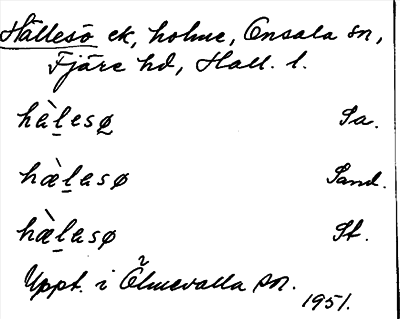 Hällesö ek, holme, Onsala sn,
Fjäre hd, Hall. l.
hàl̲esø̲ Sa.
hæ̀l̲asø Sand.
hæ̀l̲asø St.
Uppt. i Ölmevalla sn.
1951.